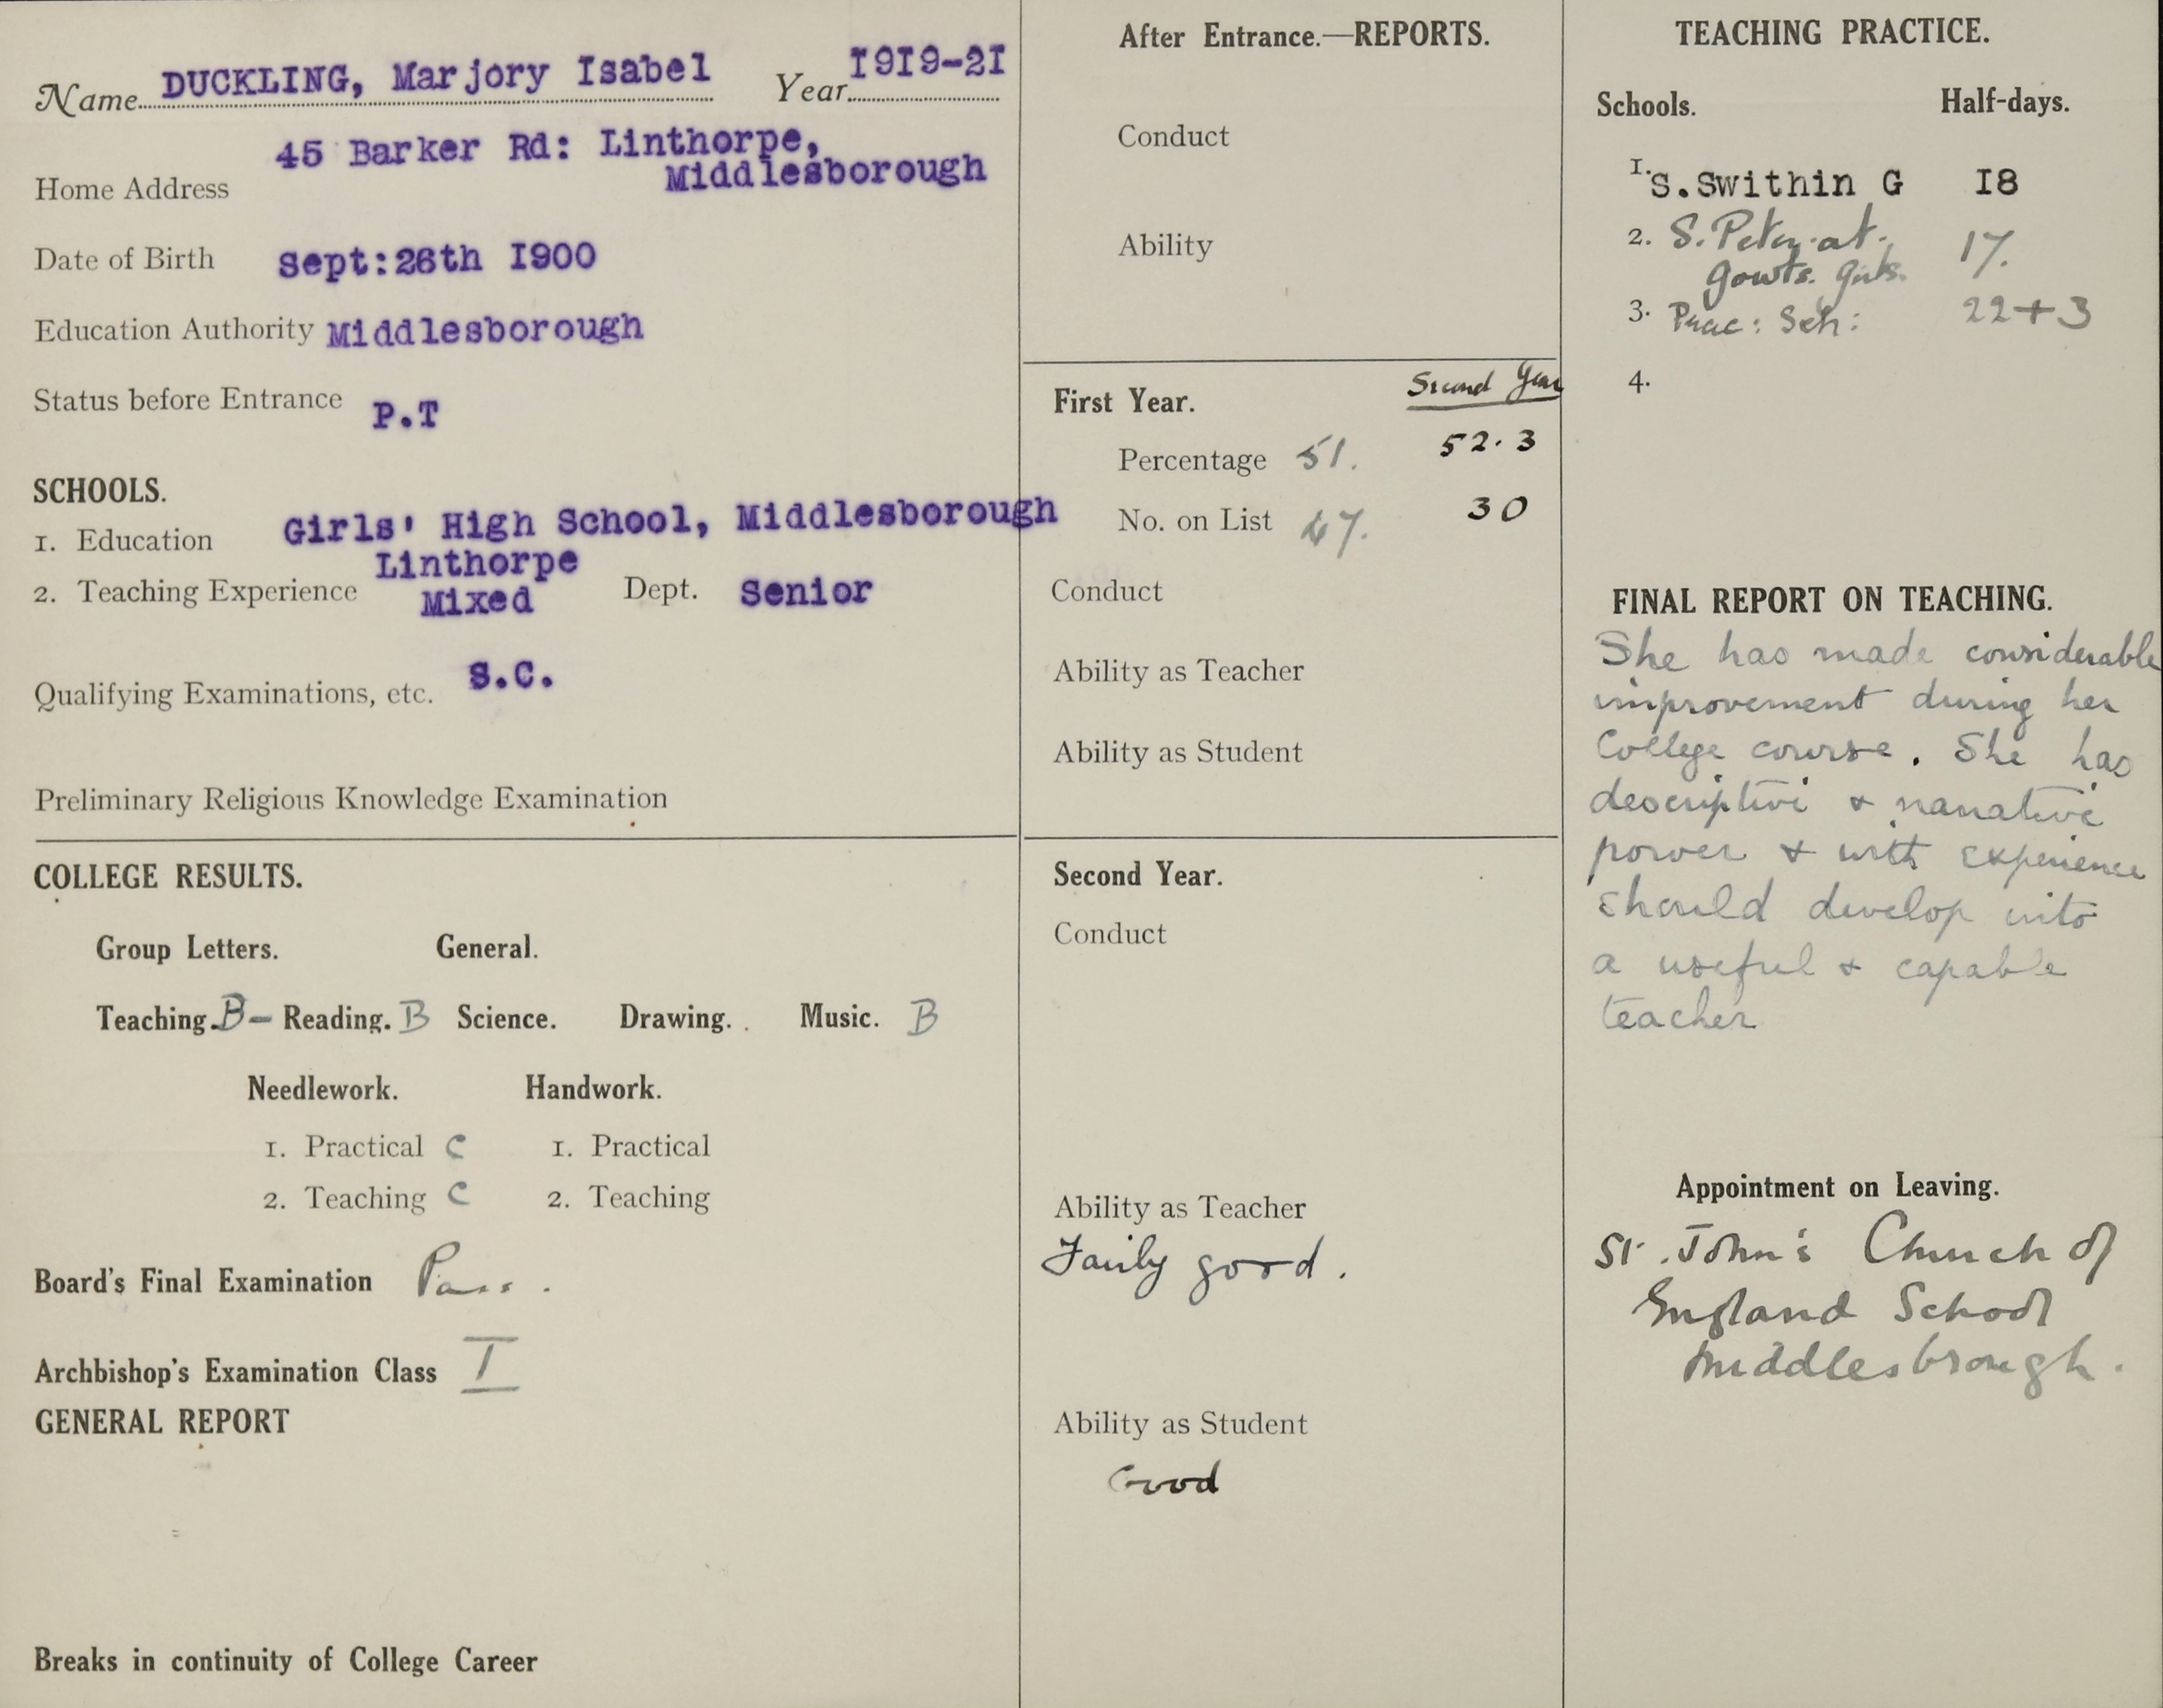 Name DUCKLING, Marjory Isabel Year 1919-21
45 Barker Rd: Linthorpe,
Middlesborough
Home Address
Date of Birth Sept:26th 1900
Education Authority Middlesborough
Status before Entrance P.T
SCHOOLS.
1. Education Girls' High School, Middlesborough
2. Teaching Experience Linthorpe
Mixed Dept. Senior
Qualifying Examinations, etc. S.C.
Preliminary Religious Knowledge Examination
COLLEGE RESULTS.
Group Letters. General.
Teaching. B- Reading. B Science. Drawing. Music. B
Needlework. Handwork.
1. Practical C 1. Practical
2. Teaching C 2. Teaching
Board's Final Examination Pass.
Archbishop's Examination Class I
GENERAL REPORT
Breaks in continuity of College Career
After Entrance.—REPORTS.
Conduct
Ability
First Year. Second Year
Percentage 51. 52.3
No. on List 47. 30
Conduct
Ability as Teacher
Ability as Student
Second Year.
Conduct
Ability as Teacher
Fairly good.
Ability as Student
Good
TEACHING PRACTICE.
Schools. Half-days.
1. S.Swithin G 18
2. S. Peter-at-
Gowts. Girls. 17.
3. Prac: Sch: 22+3
4.
FINAL REPORT ON TEACHING.
She has made considerable
improvement during her
College course. She has
descriptive & narrative
power & with experience
should develop into
a useful & capable
teacher
Appointment on Leaving.
St. John's Church of
England School
Middlesbrough.